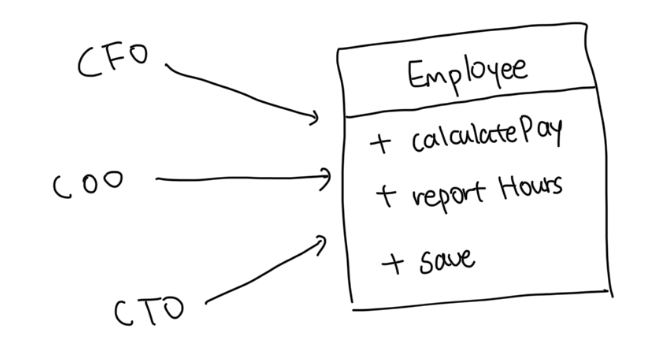 CFO
COO
CTO
Employee
+ calculatePay
+ report Hours
+ save